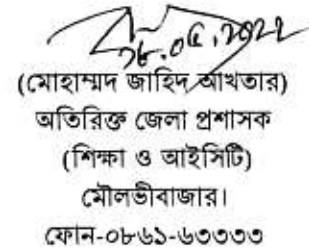 ২৬.০৫.২০২২
(মোহাম্মদ জাহিদ আখতার)
অতিরিক্ত জেলা প্রশাসক
(শিক্ষা ও আইসিটি)
মৌলভীবাজার।
ফোন-০৮৬১-৬৩৩৩৩